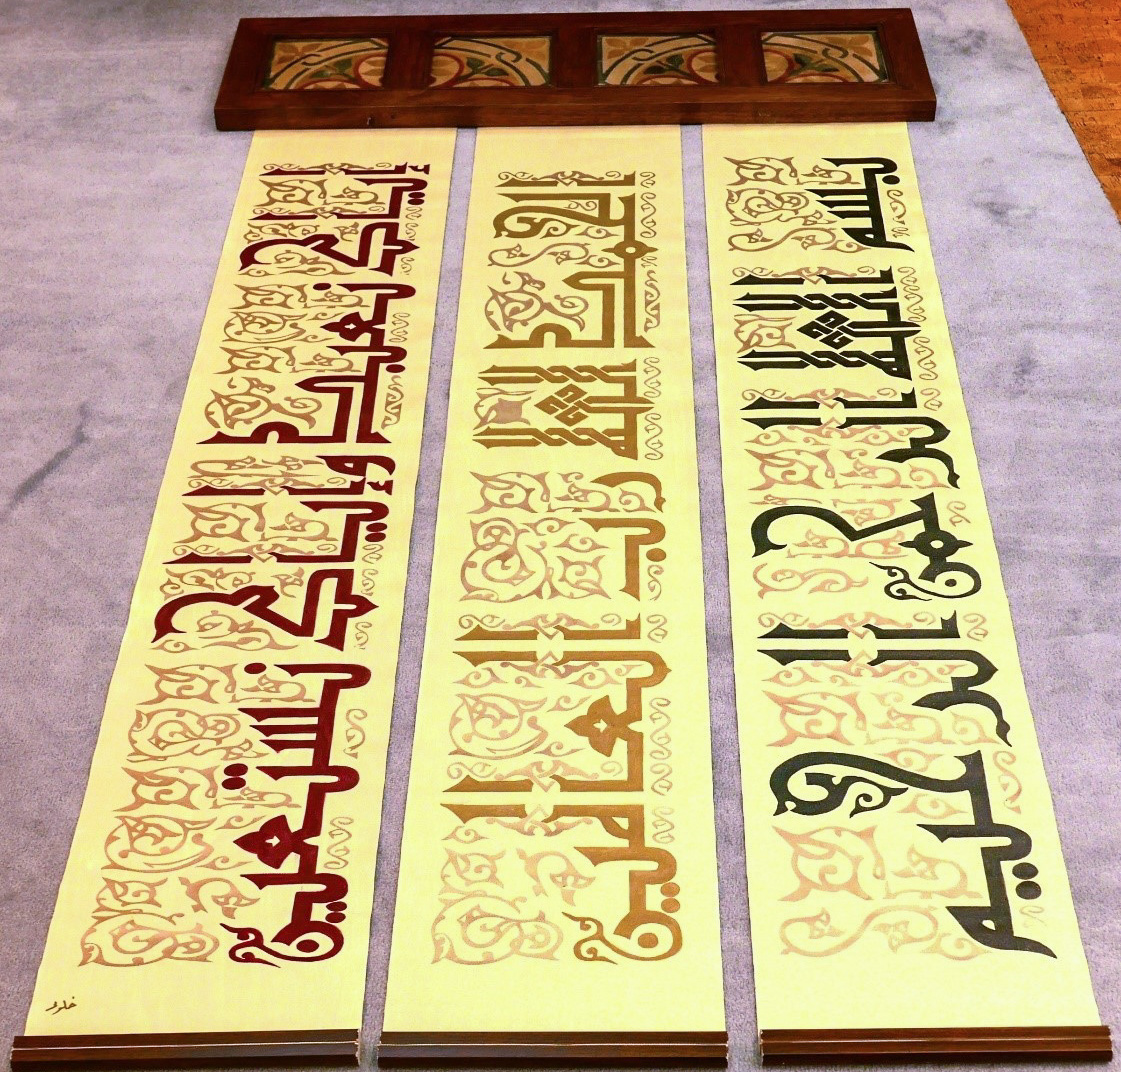 بسم الله الرحمن الرحيم
الحمد لله رب العالمين
إياك نعبد وإياك نستعين